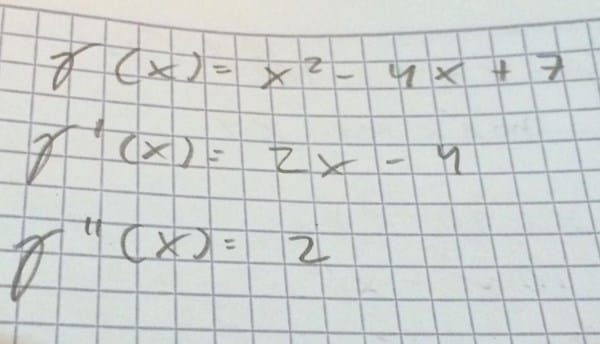 f(x) = x² - 4x + 7
f'(x) = 2x - 4
f"(x) = 2